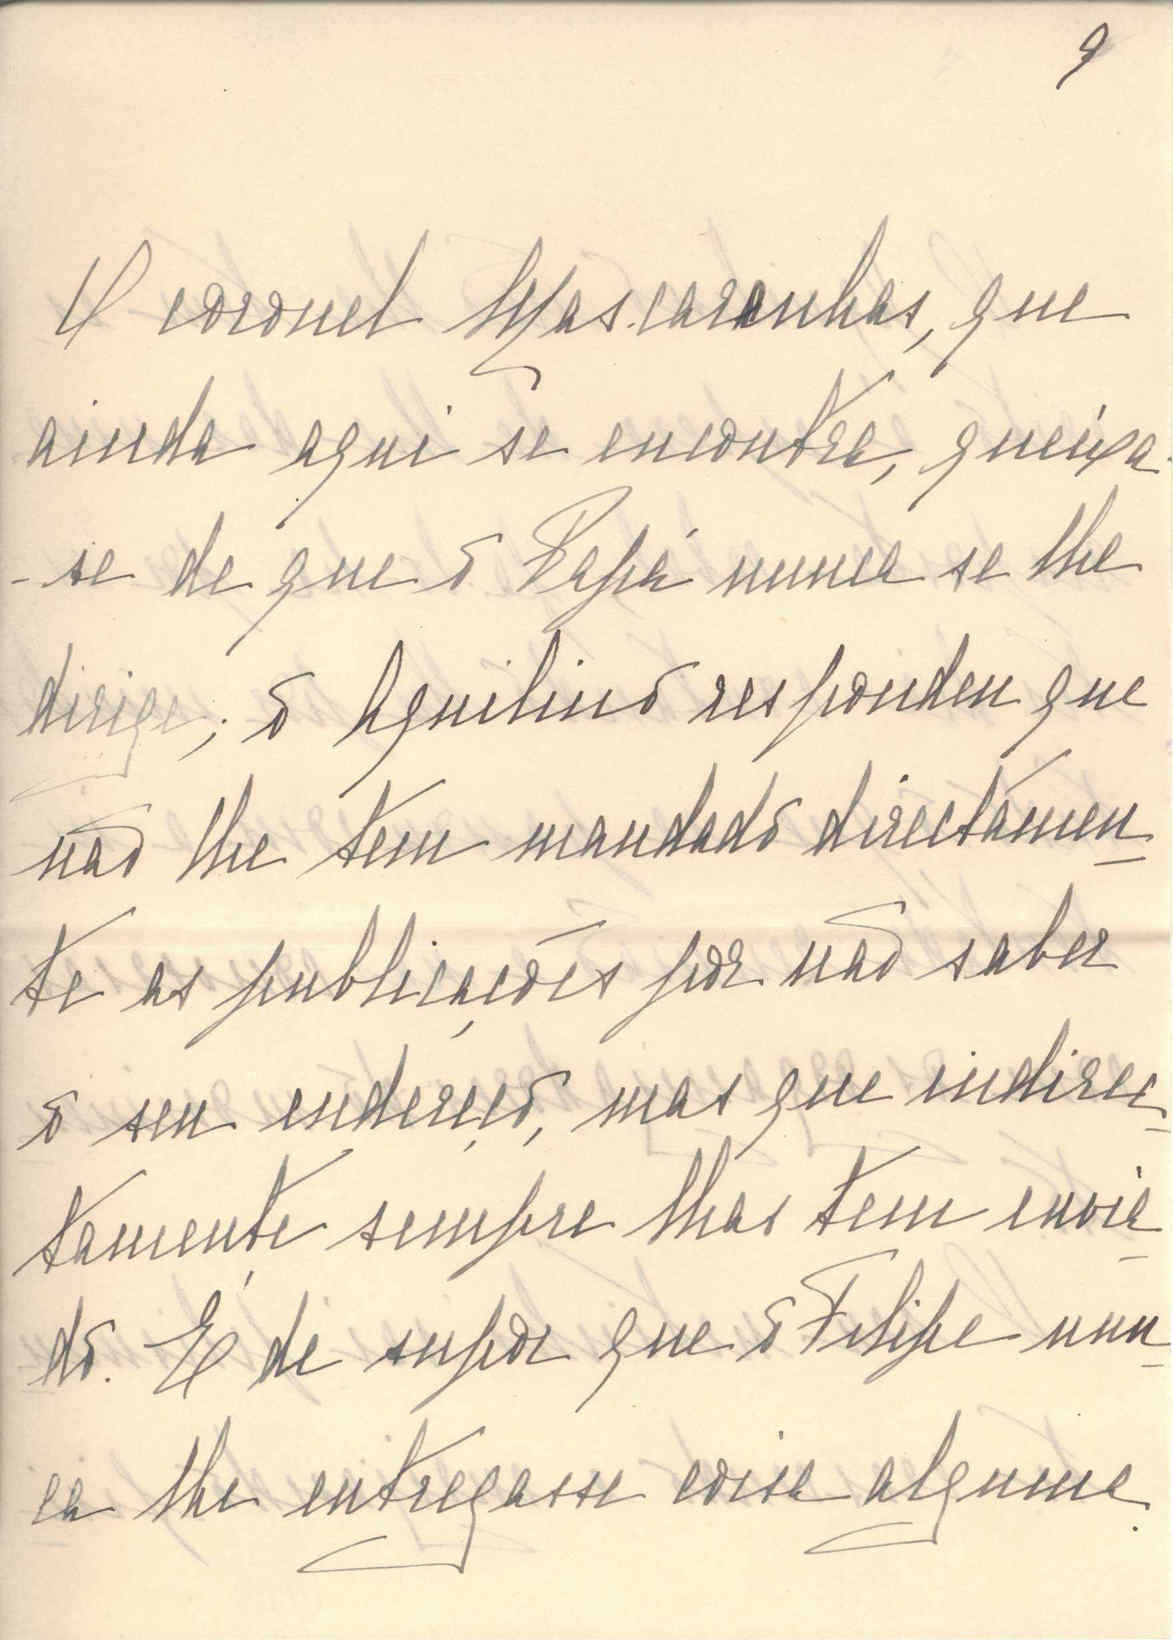 9
O coronel Mascaranhas, que
ainda aqui se encontra, queixa-
-se de que o Papá nunca se lhe
dirige; o Aquilino respondeu que
não lhe tem mandado directamen-
te as publicações por não saber
o seu endereço, mas que indirec-
tamente sempre lhas tem envia-
do. É de supôr que o Filipe nun-
ca lhe entregasse coisa alguma.